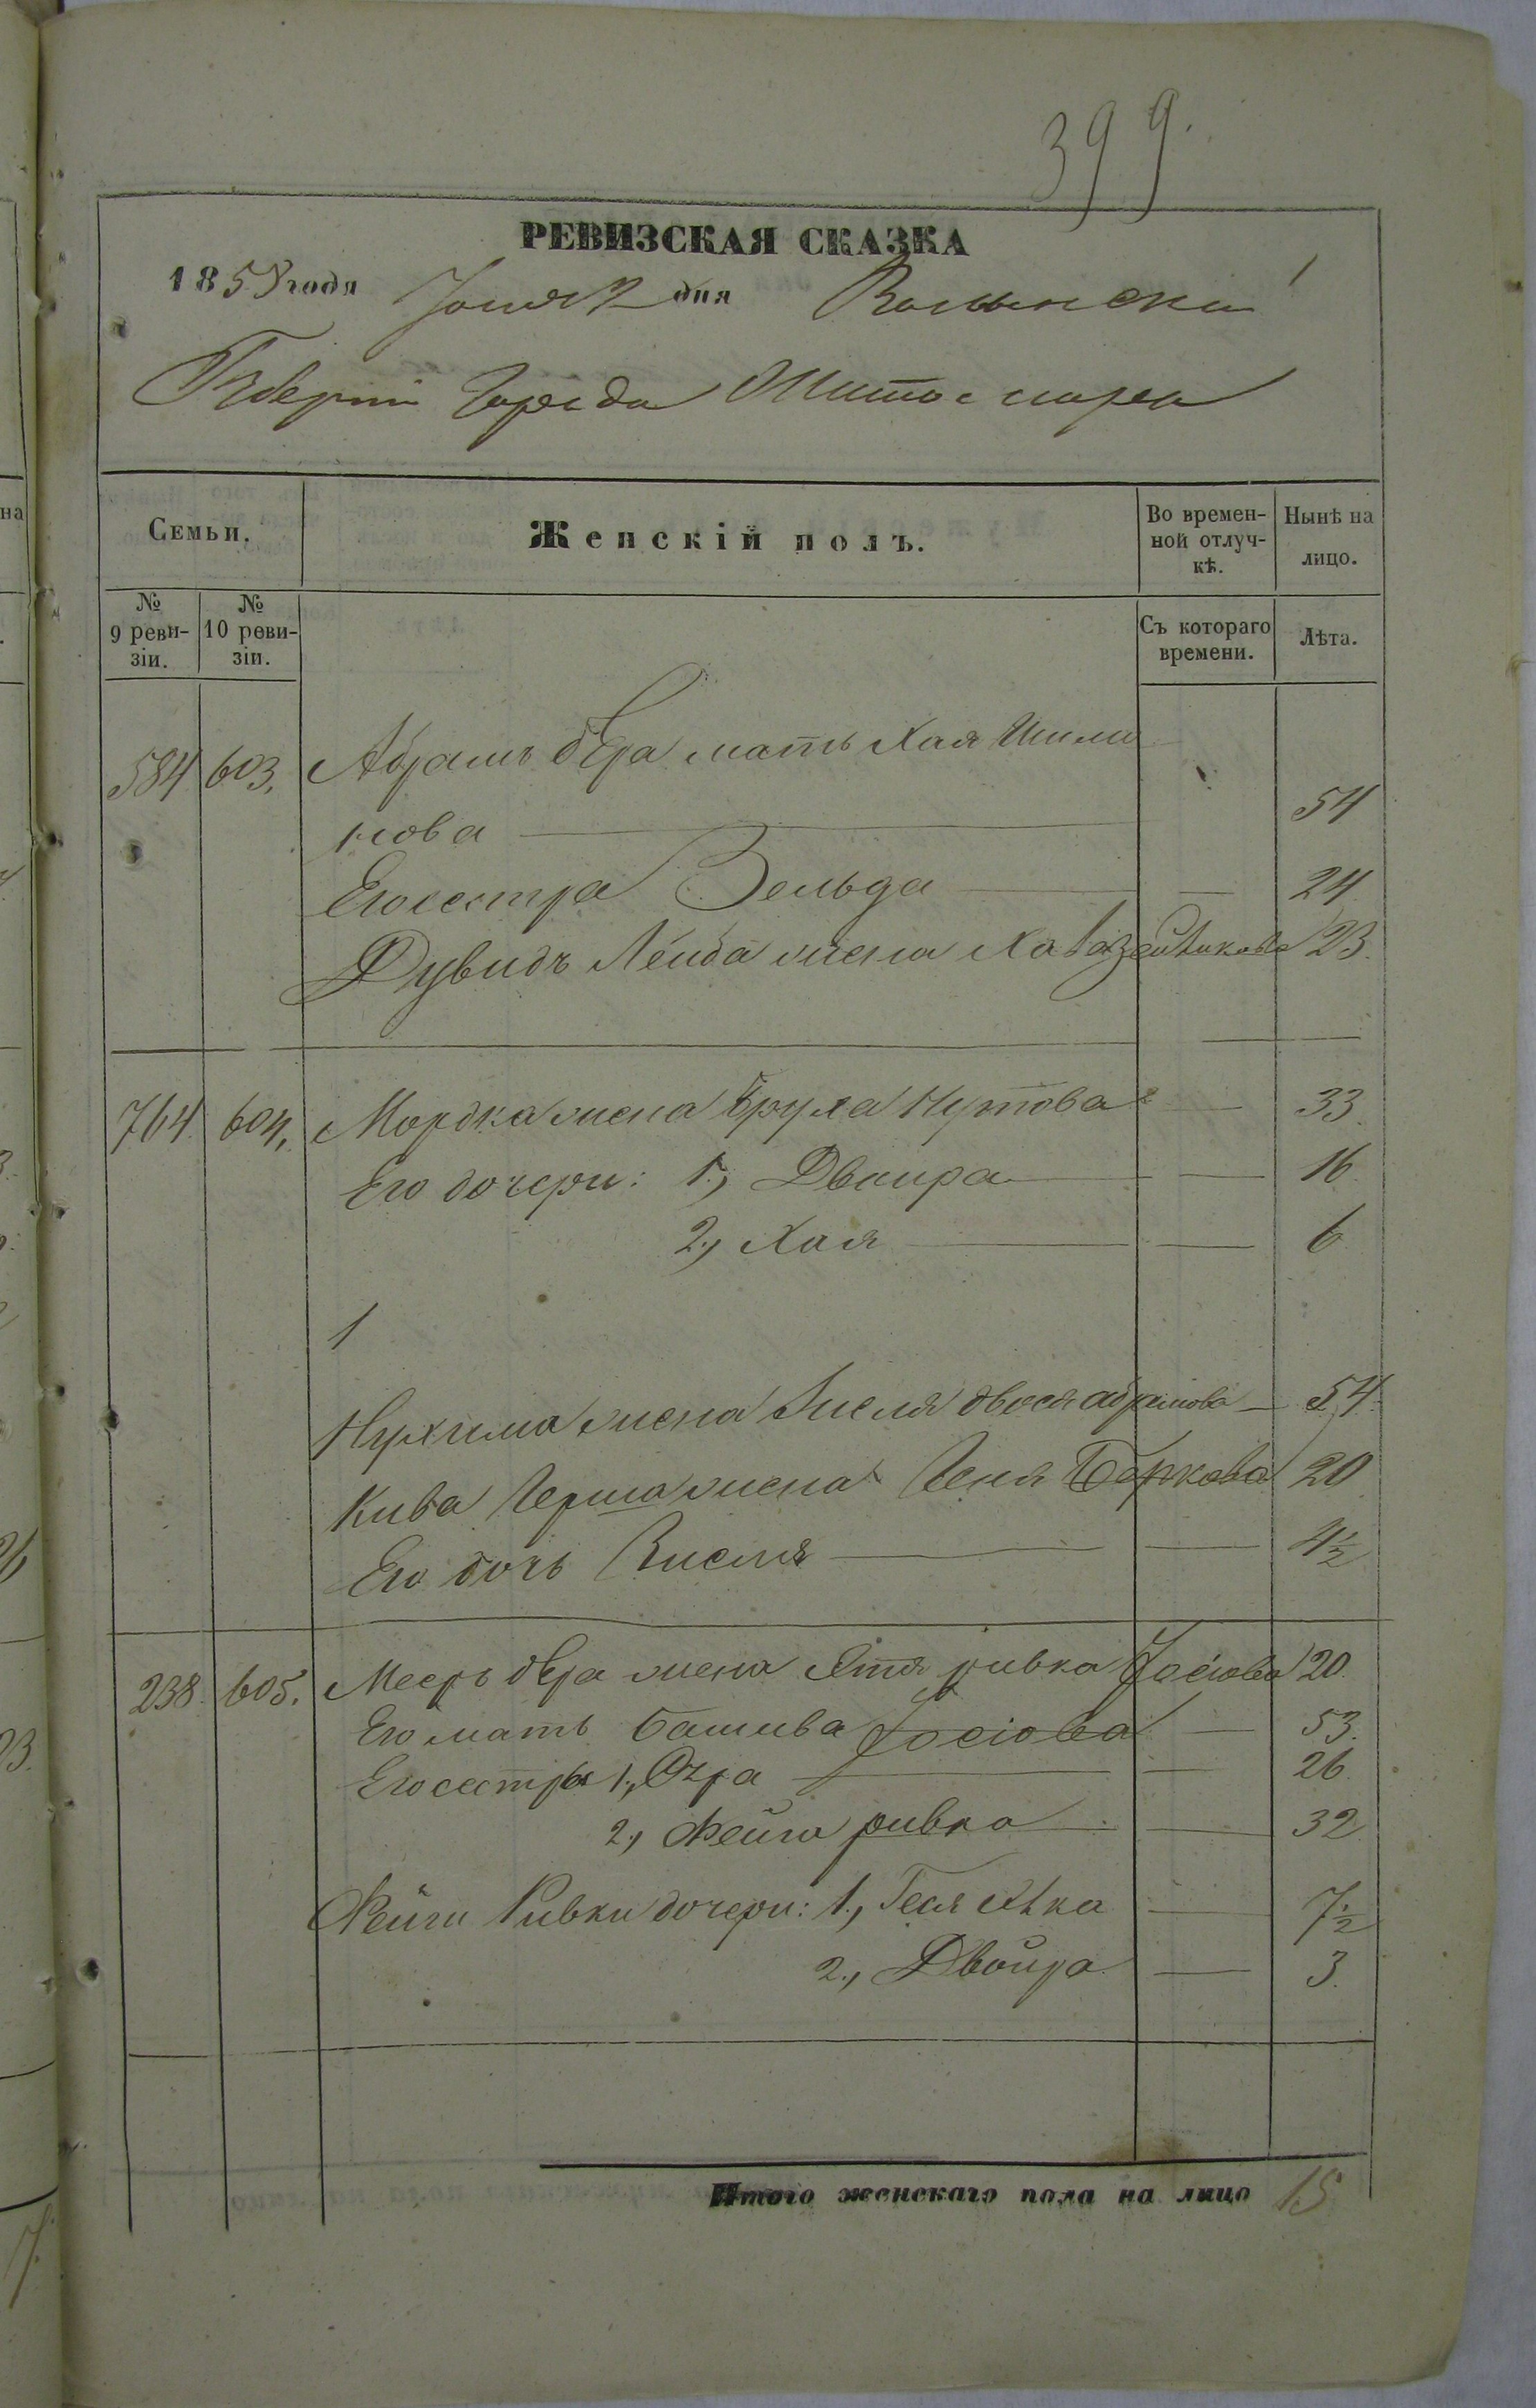 399.
РЕВИЗСКАЯ СКАЗКА
1858 года Іюня 2 дня Волынской
Губерніи Города Житомира
Семьи. Женскій полъ. Во времен-ной отлуч-кѣ. Нынѣ на лицо.
№ 9 реви-зіи. № 10 реви-зіи. Съ котораго времени. Лѣта.
584 603. Абрамъ бера мать Хая Шимо
нова 54
Его сестра Зельда 24
Дувидъ Лейба жена Хава 23.
764. 604. Мордка жена Бруха Нутова 33.
Его дочери: 1., Двоира 16
2., Хая 6
1
Нухима жена Двося абрамова 54
Кива Герша жена Геня Беркова 20
Его дочь 4½
238. 605. Мееръ бера жена ривка Іосіова 20.
Его мать башива Іосіова 53.
Его сестры 1., 26.
2., Фейга ривка 32
Фейги Ривки дочери: 1., 7½
2., Двойра 3.
Итого женскаго пола на лицо 15